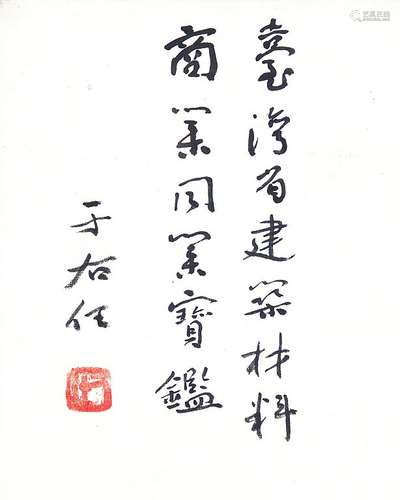 臺灣省建築材料
商業同業寶鑑
于右任